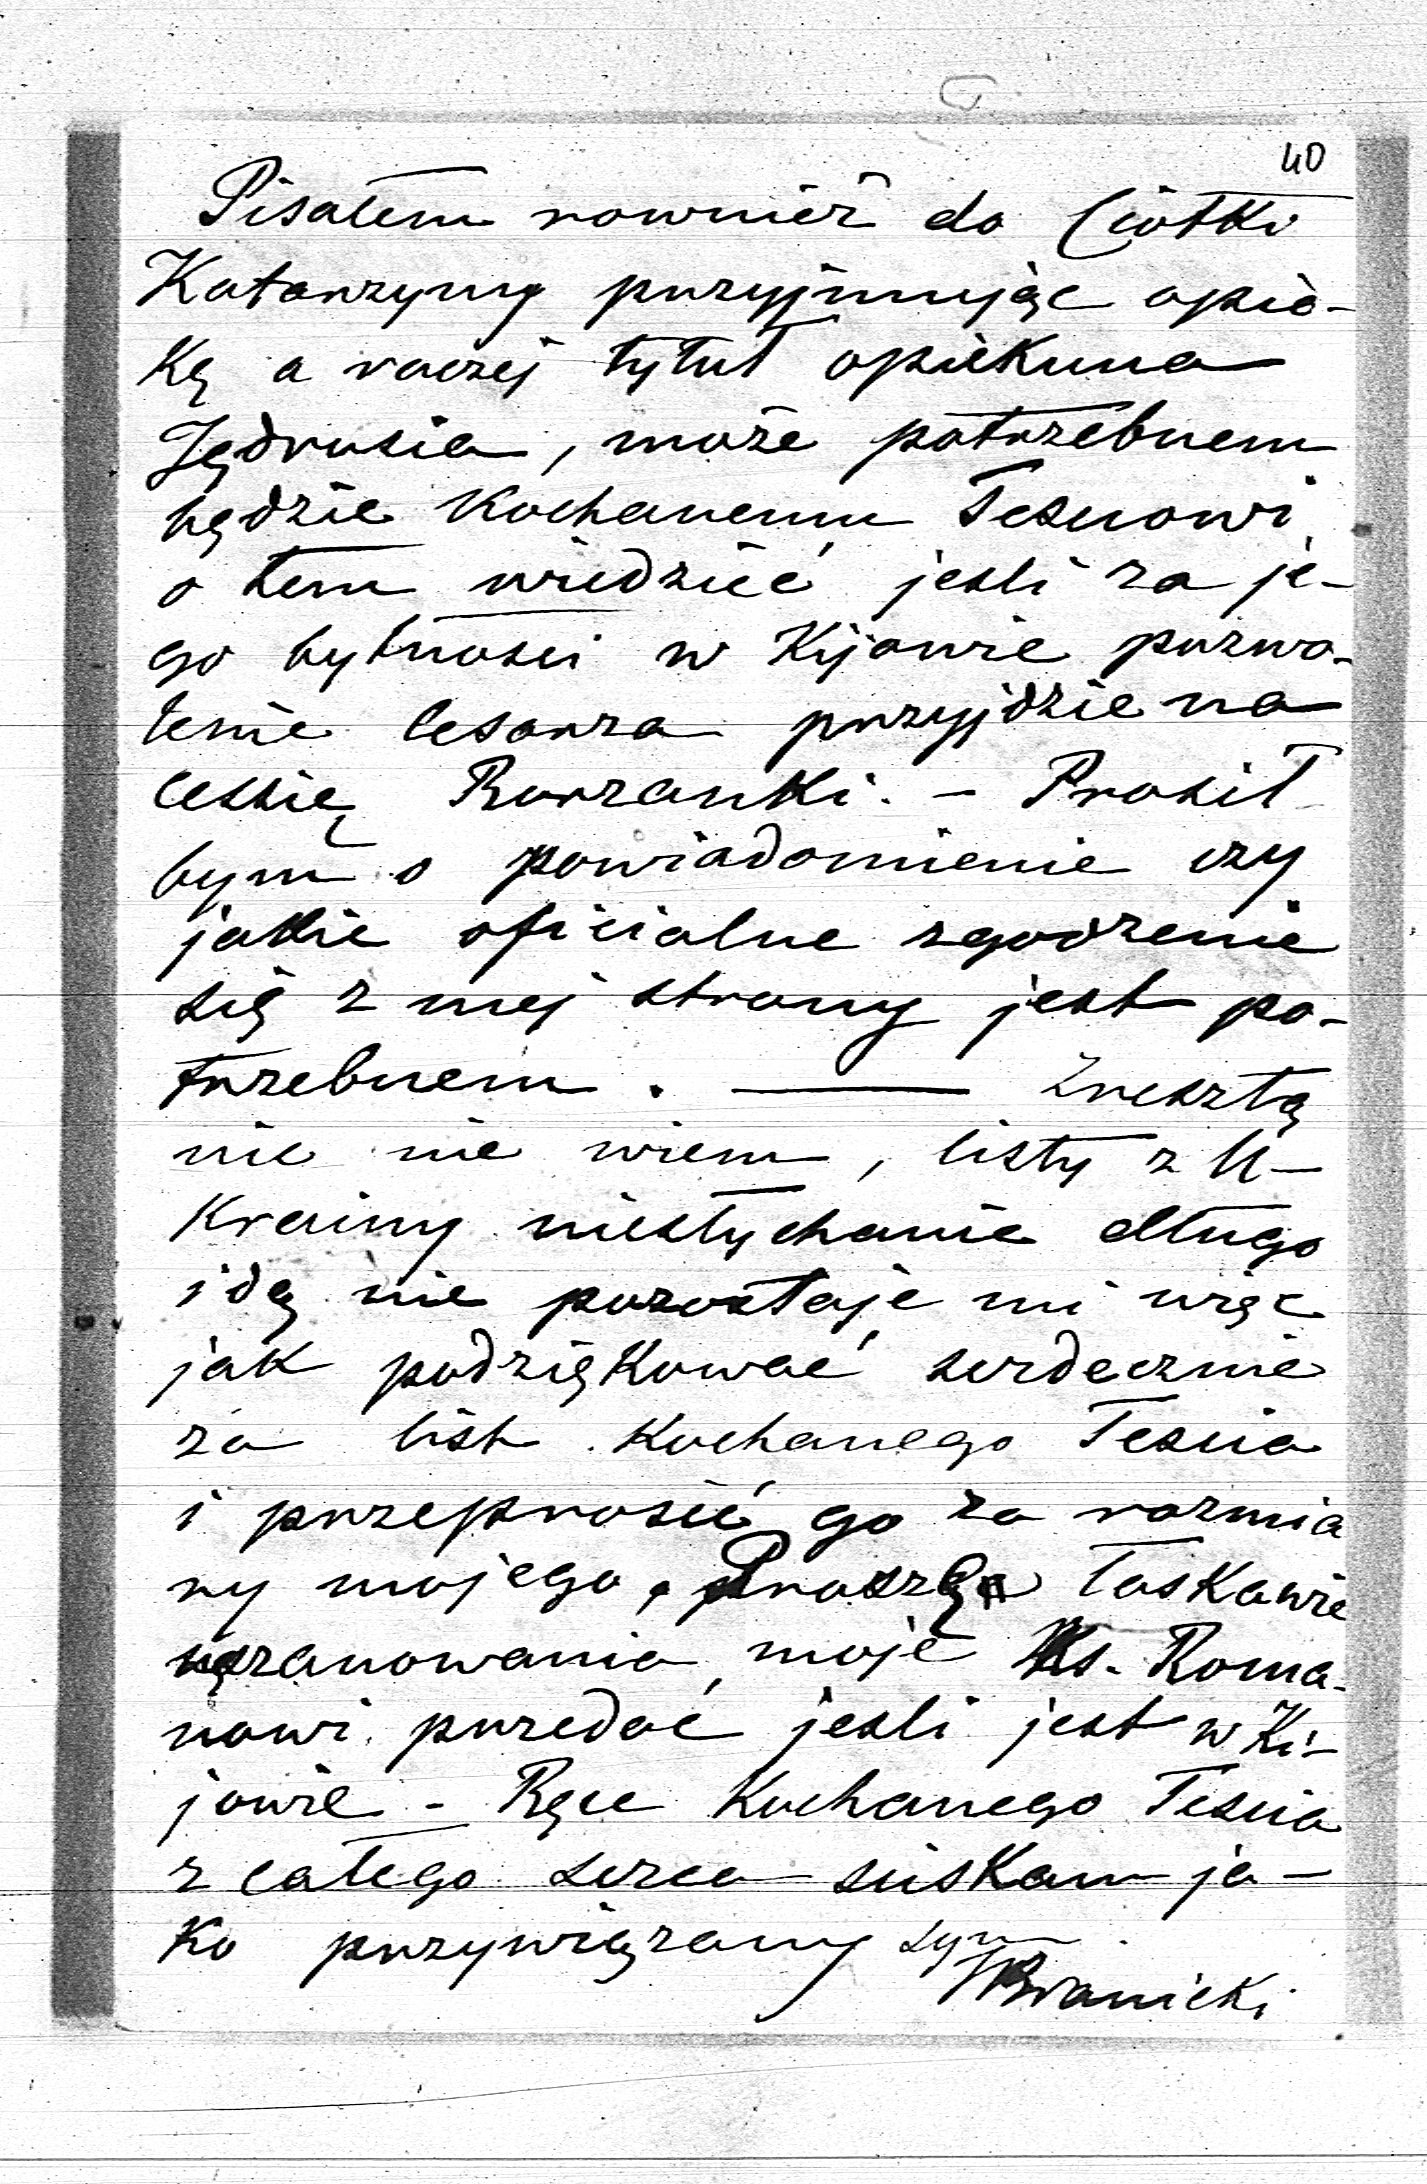 40
Pisałem rownież do Ciotki
Katarzyny przyjmując opie-
kę a raczej tytuł opiekuna
Jędrusia, może potrzebnem
będzie Kochanemu Tesciowi
o tem wiedzieć jesli za je-
go bytnosci w Kijowie pozwo-
lenie Cesarza przyjdzie na
cessię Burzanki. - Prosił
bym o powiadomienie czy
jakie oficialne zgodzenie
się z mej strony jest po-
trzebnem. — Zresztą
nic nie wiem, listy z U-
krainy niesłychanie długo
idą nie pozostaje mi więc
jak podziękować serdecznie
za list Kochanego Tescia
i przeprosić go za rozmia
ry mojego. Proszę łaskawie
uszanowania moje Ks. Roma-
nowi przedać jesli jest w Ki-
jowie - Ręce Kochanego Tescia
z całego serca sciskam ja-
ko przywiązany syn
WBranicki